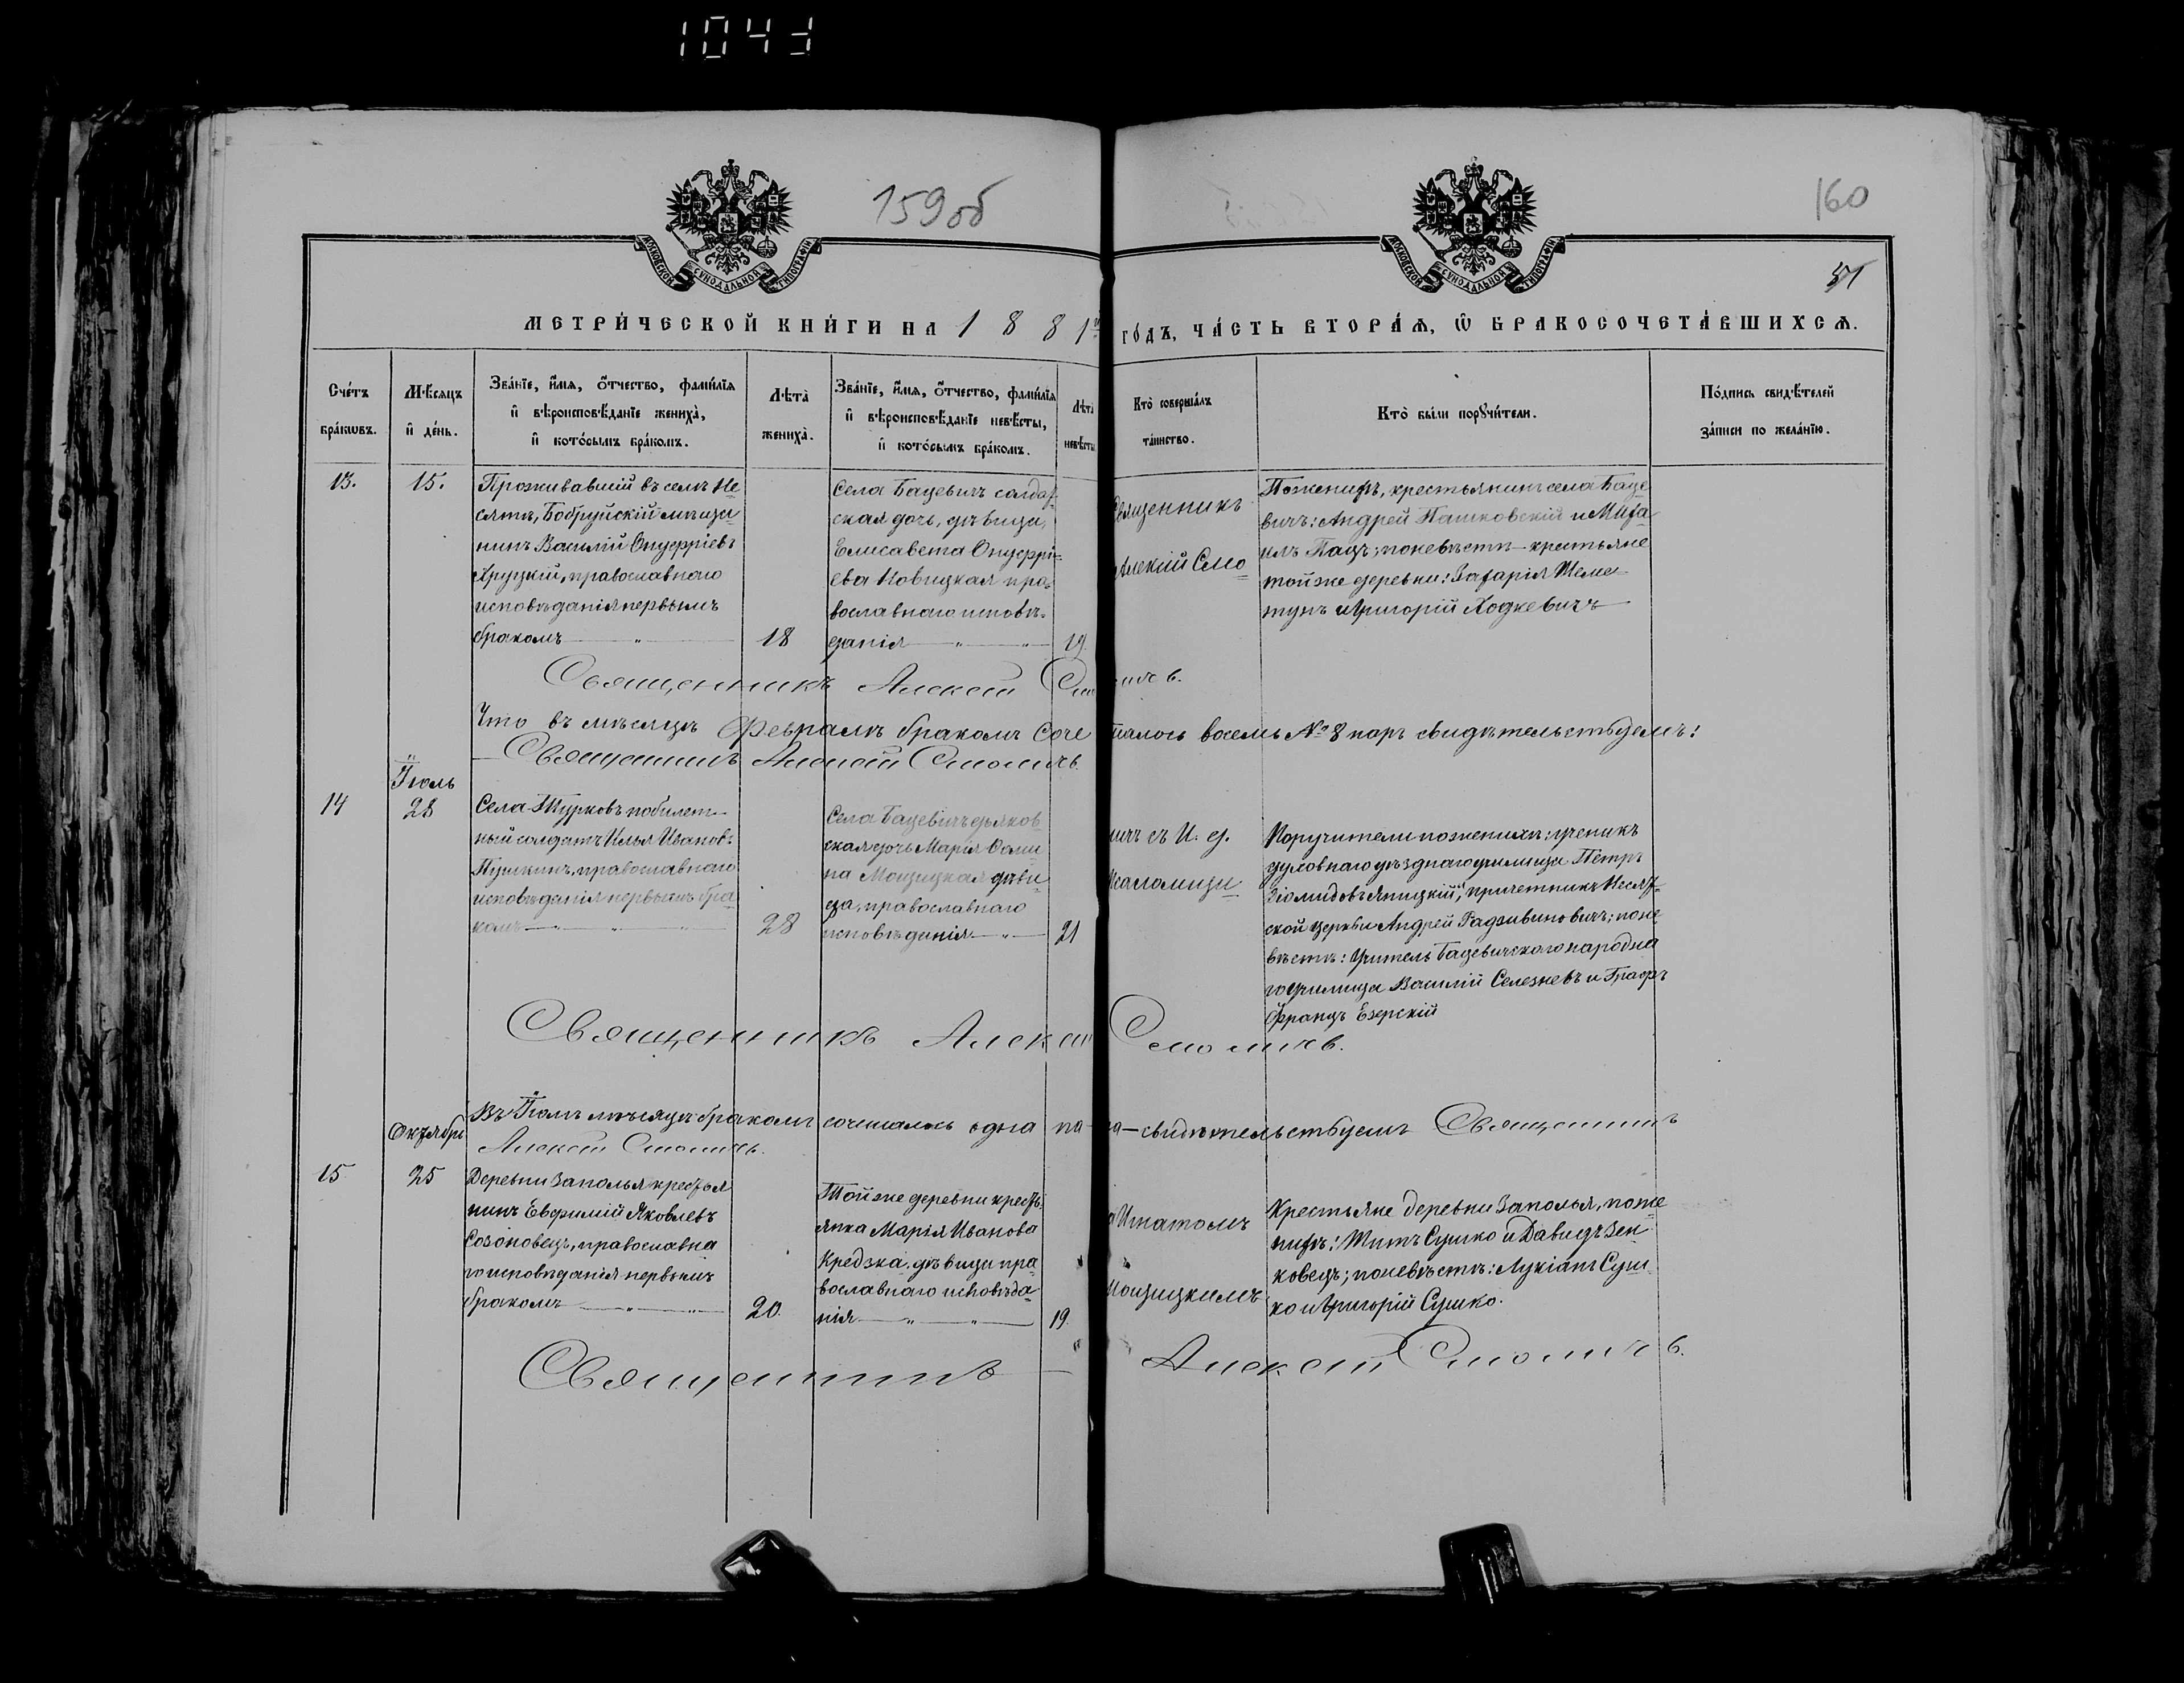 1043
159 об
160
51
МОСКОВСКОЙ СУНОДАЛЬНОЙ ТИПОГРАФІИ
МОСКОВСКОЙ СУНОДАЛЬНОЙ ТИПОГРАФІИ
МЕТРИ́ЧЕСКОЙ КНИ́ГИ НА 1881й ГО́ДЪ, ЧА́СТЬ ВТОРА́Ѧ, Ѽ БРАКОСОЧЕТА́ВШИХСѦ.
Сче́тъ бра́кѡвъ.
Мѣ́сяцъ и҆ де́нь.
Зва́нїе, и҆́мя, ѻ҆́тчество, фами́лїя
и҆ вѣроисповѣ́данїе жениха̀,
и҆ кото́рымъ бра́комъ.
Лѣта̀ жениха̀.
Зва́нїе, и҆́мя, ѻ҆́тчество, фами́лїя
и҆ вѣроисповѣ́данїе невѣ́сты,
и҆ кото́рымъ бра́комъ.
Лѣта̀ невѣ́сты
Кто̀ соверша́лъ та́инство.
Кто̀ бы́ли порꙋчи́тели.
По́дпись свидѣ́телей
за́писи по жела́нїю.
13.
15.
Проживавшій въ селѣ Не
сятѣ, Бобруйскій мѣща
нинъ Василій Онуфріевъ
Хруцкій, православнаго
исповѣданія первымъ
бракомъ
18
Села Бацевичъ солдат
ская дочь, дѣвица,
Елисавета Онуфрі=
ева Новицкая пра=
вославнаго исповѣ=
данія
19.
Священникъ
Алексій Смо
Поженихѣ, крестьянинъ села Баце
вичъ: Андрей Пашковскій и Миха
илъ Пацъ; поневѣстѣ крестьяне
тойже деревни: Захарія Шеме
тунъ и Григорій Ходкевичъ
Священникъ Алексѣй Смоличъ.
Что въ мѣсяцѣ Февралѣ бракомъ соче талось восемь № 8 паръ свидѣтельствуемъ:
Священникъ Алексѣй Смоличъ.
Іюль
14
28
Села Турковъ побилет
ный солдатъ Илья Ивановъ
Пушкинъ, православнаго
исповѣданія первымъ бра
комъ
28
Села Бацевичъ дьяков
ская дочь Марія Оси
па Мощицкая дѣви
ца, православнаго
исповѣданія
21
личъ съ И. д.
Псаломщи
Поручители поженихѣ: ученикъ
духовнаго уѣзднаго училища Петръ
Діомидовъ Яницкій, причетникъ Несят
ской церкви Андрей Гадзивиновичъ; поне
вѣстѣ: Учитель Бацевичскаго народна
го училища Василій Селезневъ и Графъ
Францъ Езерскій
Священникъ Алексѣй Смоличъ.
Въ Іюлѣ мѣсяцѣ бракомъ сочеталась одна па ра — свидѣтельствуемъ Священникъ
Алексѣй Смоличъ.
Октябрь
15
25
Деревни Заполья крестья
нинъ Евфимій Яковлевъ
Созоновецъ, православна
го исповѣданія первымъ
бракомъ
20.
Тойже деревни кресть
янка Марія Иванова
Кредзка, дѣвица пра
вославнаго исповѣда
нія
19.
Игнатомъ
Мощицкимъ
Крестьяне деревни Заполья, поже
нихѣ: Титъ Сушко и Давидъ Зен
ковецъ; поневѣстѣ: Лукіанъ Суш
ко и Григорій Сушко.
Священникъ — Алексѣй Смоличъ.